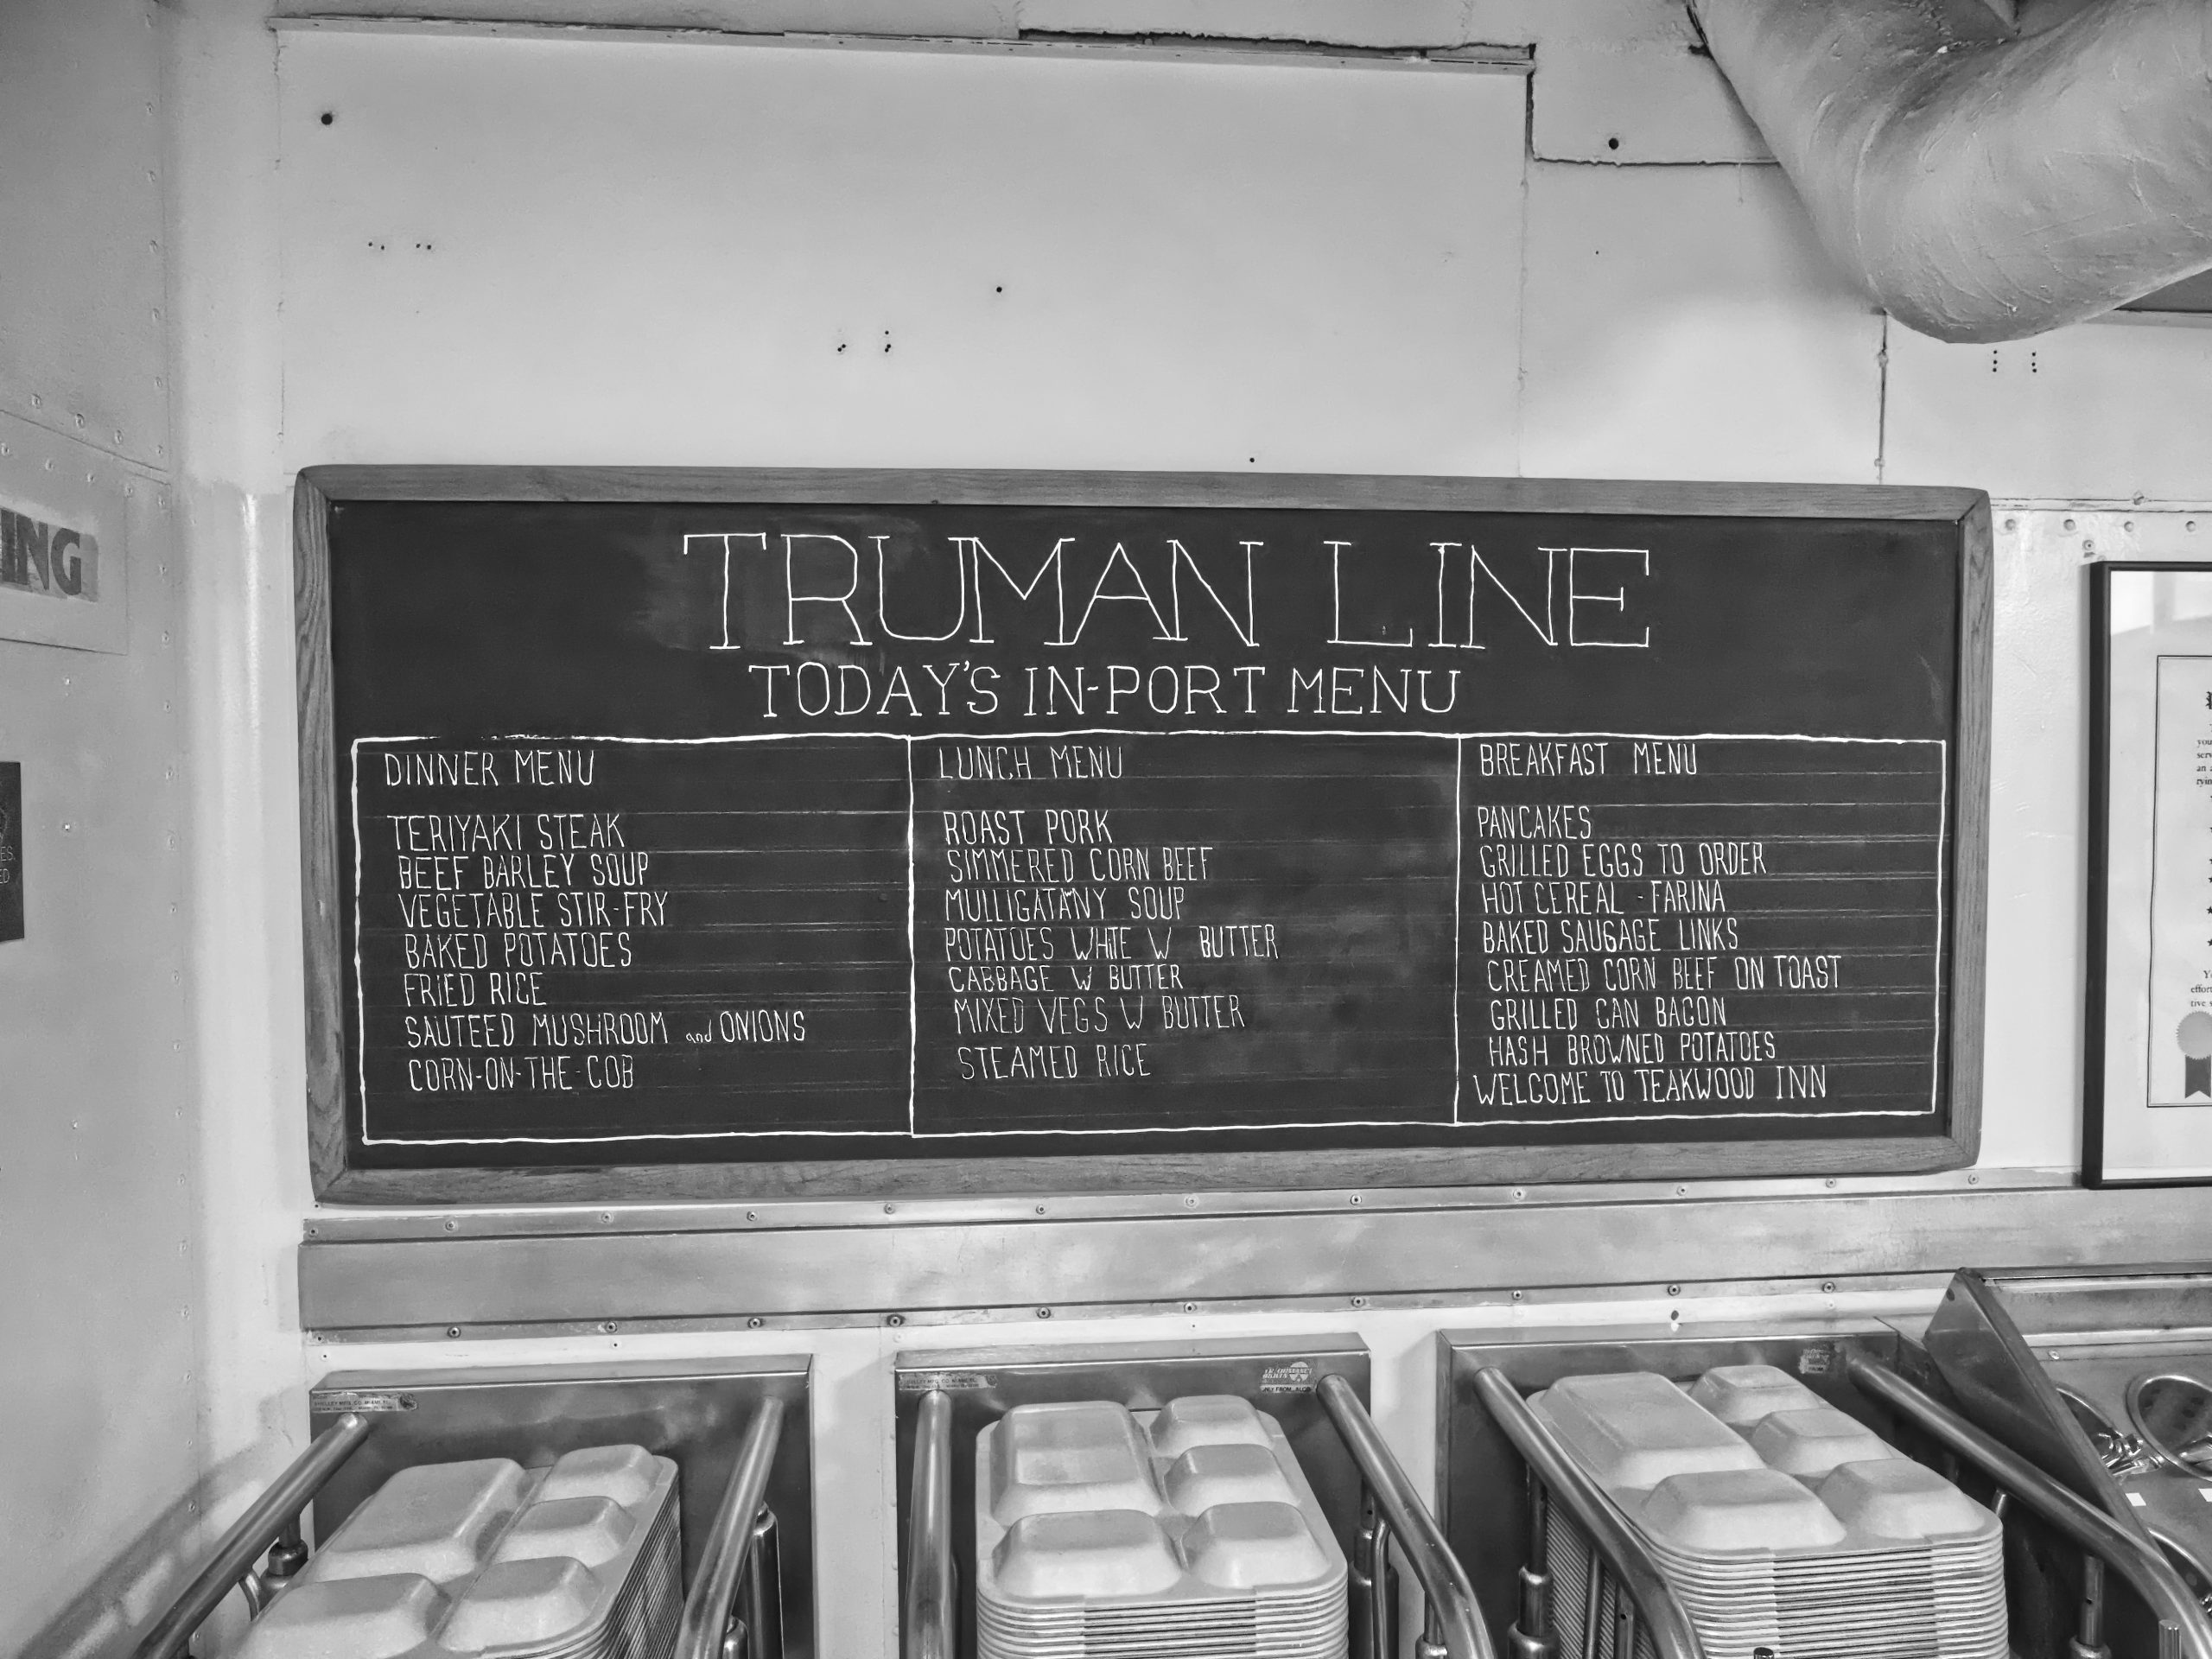 ING
TRUMAN LINE
TODAY'S IN-PORT MENU
DINNER MENU
TERIYAKI STEAK
BEEF BARLEY SOUP
VEGETABLE STIR-FRY
BAKED POTATOES
FRIED RICE
SAUTEED MUSHROOM and ONIONS
CORN-ON-THE-COB
LUNCH MENU
ROAST PORK
SIMMERED CORN BEEF
MULLIGATANY SOUP
POTATOES WHITE W BUTTER
CABBAGE W BUTTER
MIXED VEGS W BUTTER
STEAMED RICE
BREAKFAST MENU
PANCAKES
GRILLED EGGS TO ORDER
HOT CEREAL - FARINA
BAKED SAUSAGE LINKS
CREAMED CORN BEEF ON TOAST
GRILLED CAN BACON
HASH BROWNED POTATOES
WELCOME TO TEAKWOOD INN